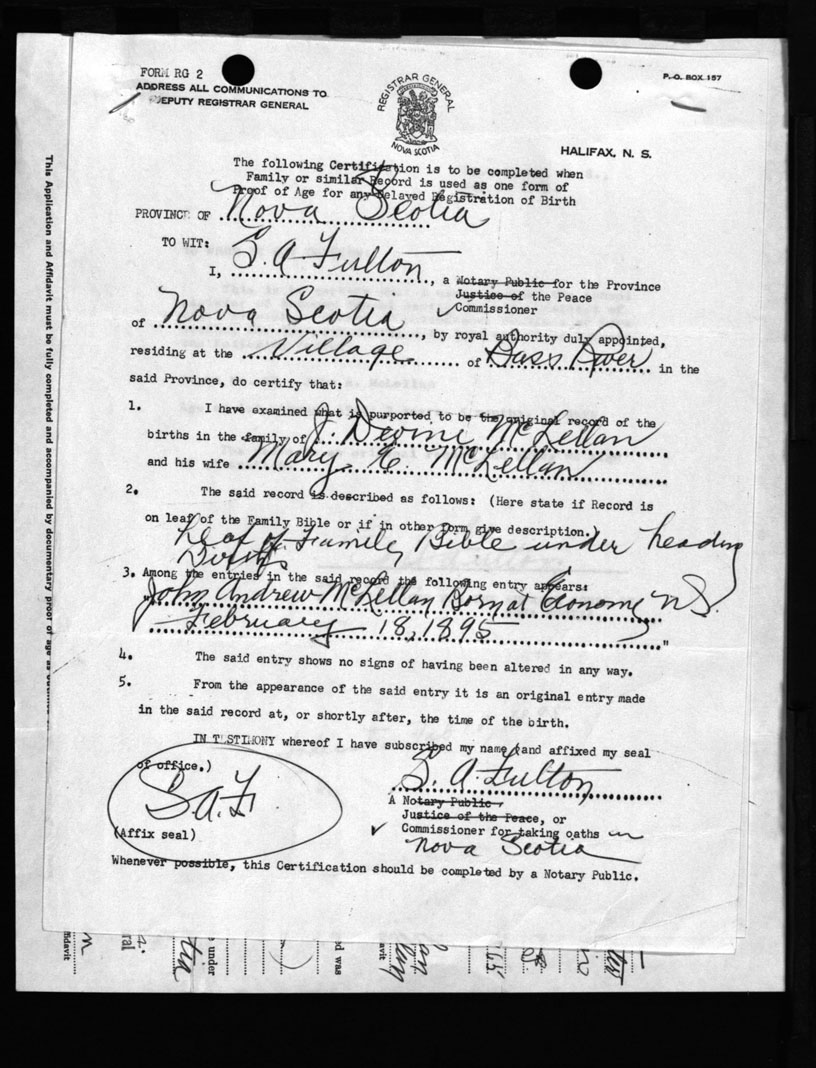 FORM RG 2
ADDRESS ALL COMMUNICATIONS TO
DEPUTY REGISTRAR GENERAL
REGISTRAR GENERAL
NOVA SCOTIA
P. O. BOX 157
HALIFAX, N. S.
The following Certification is to be completed when
Family or similar Record is used as one form of
Proof of Age for any Delayed Registration of Birth
PROVINCE OF Nova Scotia
TO WIT:
I, S. A. Fulton, a Notary Public for the Province
Justice of the Peace
✓Commissioner
of Nova Scotia, by royal authority duly appointed,
residing at the Village of Bass River in the
said Province, do certify that:
1. I have examined what is purported to be the original record of the
births in the family of J. Devine McLellan
and his wife Mary E. McLellan
2. The said record is described as follows: (Here state if Record is
on leaf of the Family Bible or if in other form give description.)
Leaf of Family Bible under heading
Births.
3. Among the entries in the said record the following entry appears:
"John Andrew McLellan Born at Economy N.S.
February 18, 1895"
4. The said entry shows no signs of having been altered in any way.
5. From the appearance of the said entry it is an original entry made
in the said record at, or shortly after, the time of the birth.
IN TESTIMONY whereof I have subscribed my name (and affixed my seal
of office.)
S. A. Fulton
S.A.F.
(Affix seal)
A Notary Public,
Justice of the Peace, or
✓ Commissioner for taking oaths in
Nova Scotia
Whenever possible, this Certification should be completed by a Notary Public.
This Application and Affidavit must be fully completed and accompanied by documentary proof of age as